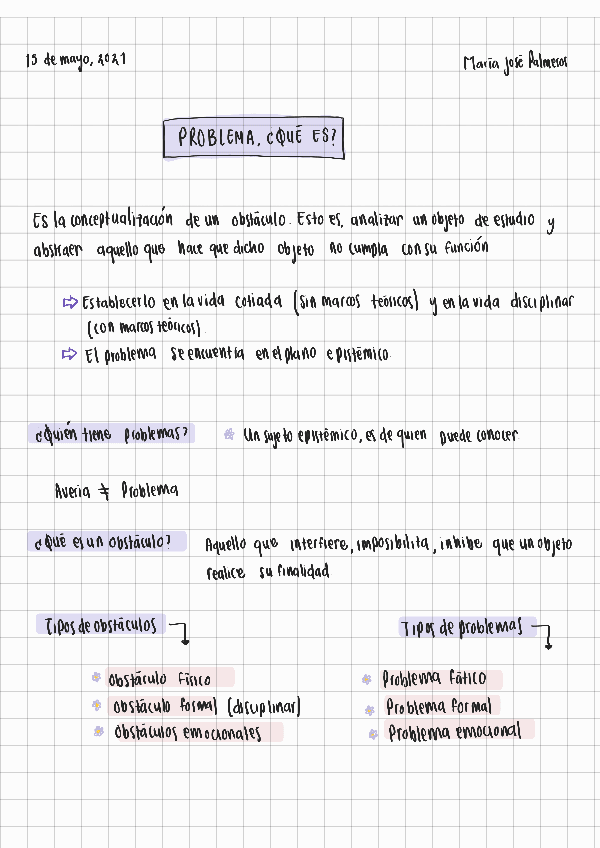 15 de mayo, 2021
María José Palmeros
PROBLEMA, ¿QUÉ ES?
Es la conceptualización de un obstáculo. Esto es, analizar un objeto de estudio y
abstraer aquello que hace que dicho objeto no cumpla con su función
⇨ Establecerlo en la vida cotiada (sin marcos teóricos) y en la vida disciplinar
(con marcos teóricos)
⇨ El problema se encuentra en el plano epistémico.
¿Quién tiene problemas?
Un sujeto epistémico, es de quien puede conocer
Averia ≠ Problema
¿Qué es un obstáculo?
Aquello que interfiere, imposibilita, inhibe que un objeto
realice su finalidad
Tipos de obstáculos
Obstáculo físico
Obstáculo formal (disciplinar)
Obstáculos emocionales
Tipos de problemas
Problema fático
Problema formal
Problema emocional